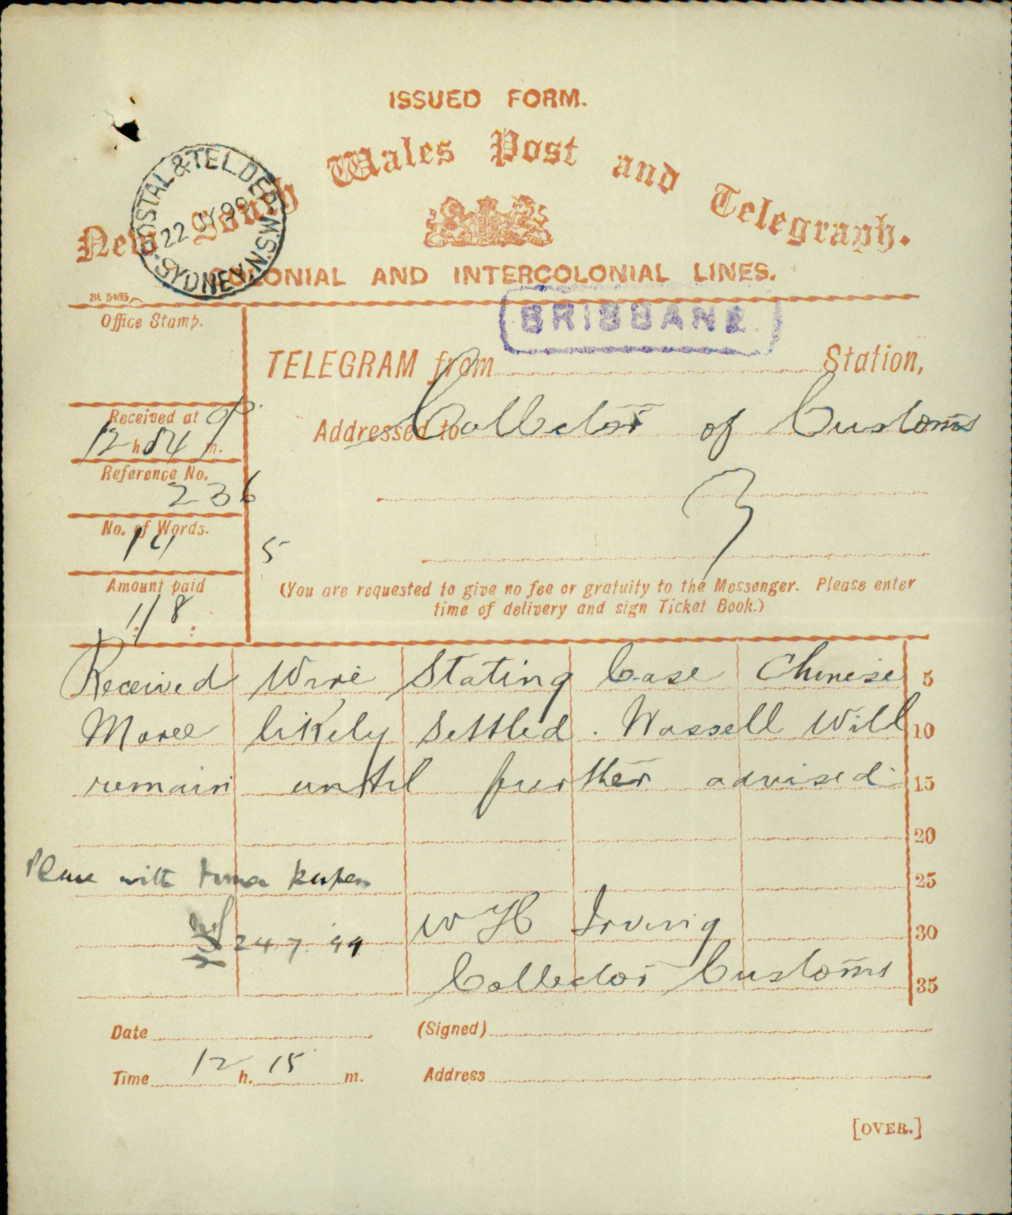 ISSUED FORM.
New South Wales Post and Telegraph.
POSTAL & TEL. DEP. N.S.W.
22 JY 99
SYDNEY
COLONIAL AND INTERCOLONIAL LINES.
BRISBANE
Office Stamp.
TELEGRAM from Station,
Received at
12 h. 54 P m.
Addressed to Collector of Customs
Reference No.
236
No. of Words.
5
Amount paid
1/8
(You are requested to give no fee or gratuity to the Messenger. Please enter
time of delivery and sign Ticket Book.)
Received Wire Stating Case Chinese 5
Moree likely Settled. Wassell Will 10
remain until further advised 15
20
with 25
W H Irving 30
24.7.99
Collector Customs 35
Date (Signed)
Time 12 h. 15 m. Address
[OVER.]